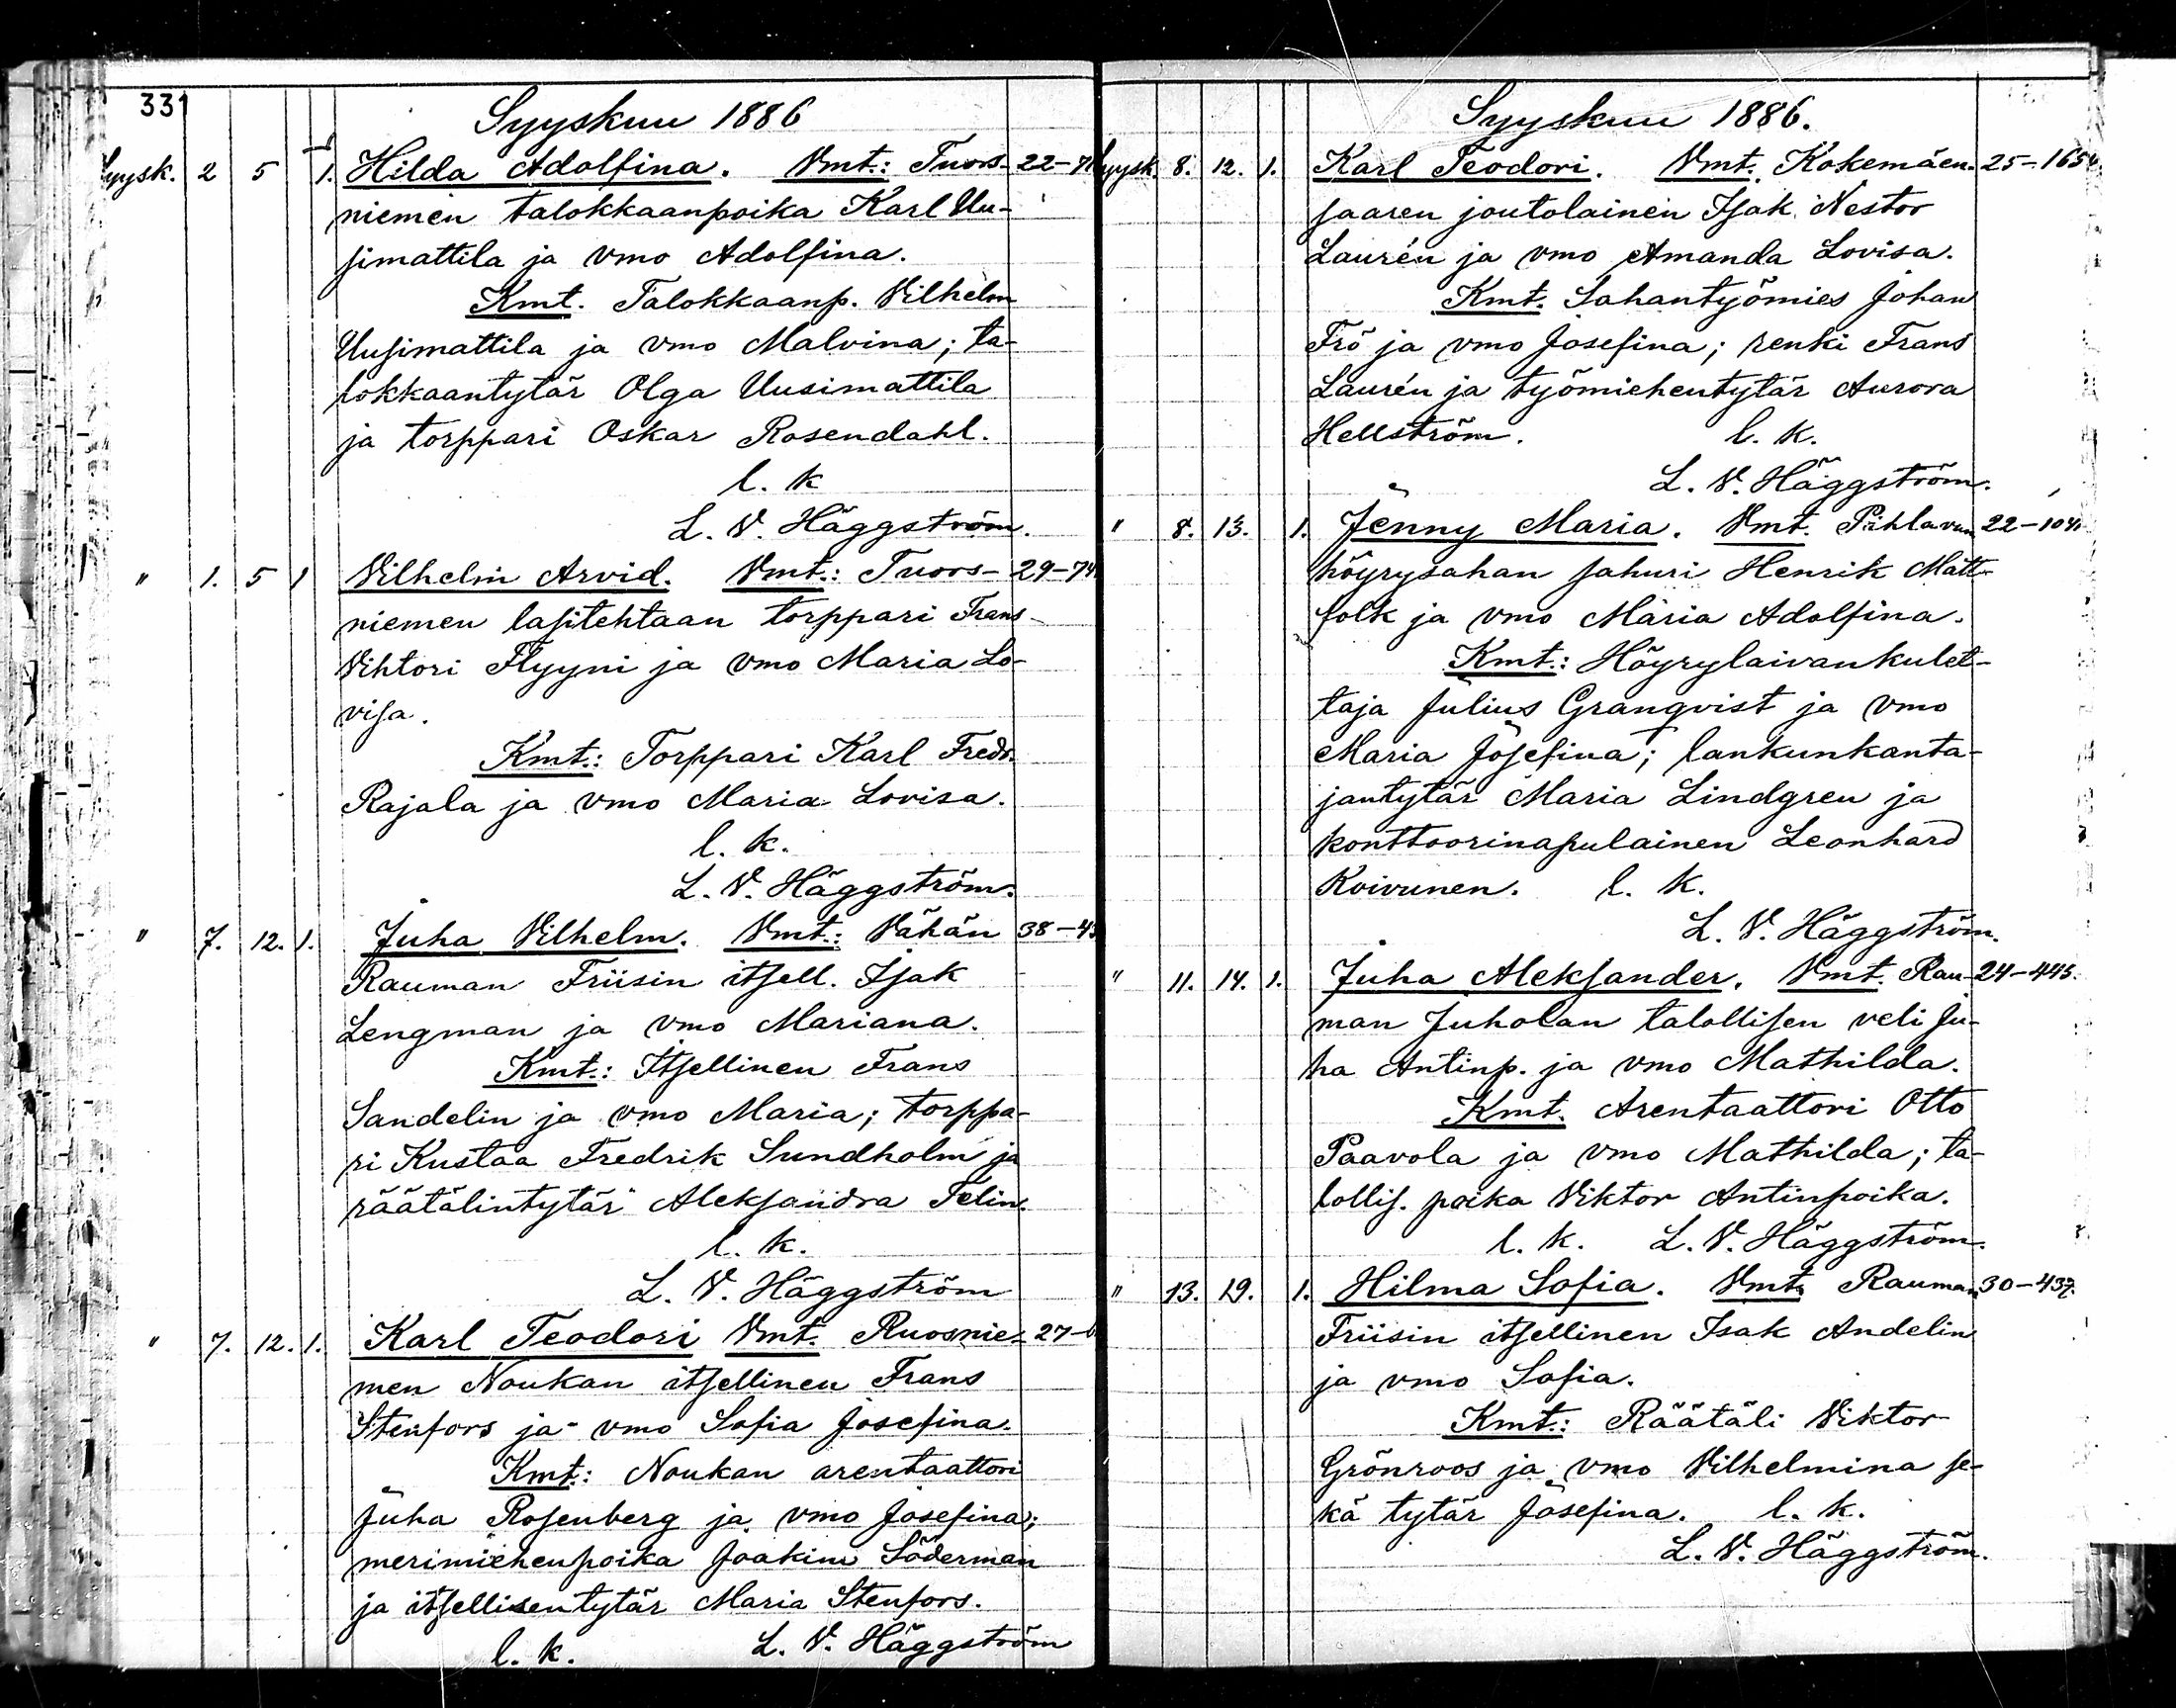 331
Syyskuu 1886
Syysk. 2 5 1. Hilda Adolfina. Vmt.: Tuors- 22-71
niemen talokkaanpoika Karl Uu-
simattila ja vmo Adolfina.
Kmt. Talokkaanp. Vilhelm
Uusimattila ja vmo Malvina; ta-
lokkaantytär Olga Uusimattila
ja torppari Oskar Rosendahl.
l. k
L. V. Häggström.
" 1. 5 1 Vilhelm Arvid. Vmt.: Tuors- 29-74
niemen lasitehtaan torppari Frans
Vihtori Flyyni ja vmo Maria Lo-
visa.
Kmt.: Torppari Karl Fredr.
Rajala ja vmo Maria Lovisa.
l. k.
L. V. Häggström.
" 7. 12. 1. Juha Vilhelm. Vmt.: Vähän 38-43
Rauman Friisin itsell. Isak
Lengman ja vmo Mariana.
Kmt.: Itsellinen Frans
Sandelin ja vmo Maria; torppa-
ri Kustaa Fredrik Sundholm ja
räätälintytär Aleksandra Felin.
l. k.
L. V. Häggström
" 7. 12. 1. Karl Teodori Vmt. Ruosnie- 27-
men Noukan itsellinen Frans
Stenfors ja vmo Sofia Josefina.
Kmt.: Noukan arentaattori
Juha Rosenberg ja vmo Josefina;
merimiehenpoika Joakim Söderman
ja itsellisentytär Maria Stenfors.
l. k. L. V. Häggström
Syyskuu 1886.
Syysk. 8. 12. 1. Karl Teodori. Vmt. Kokemäen- 25-165
saaren joutolainen Isak Nestor
Laurén ja vmo Amanda Lovisa.
Kmt. Sahantyömies Johan
Frö ja vmo Josefina; renki Frans
Laurén ja työmiehentytär Aurora
Hellström. l. k.
L. V. Häggström.
" 8. 13. 1. Jenny Maria. Vmt. Pihlavan 22-104
höyrysahan sahuri Henrik Matt-
folk ja vmo Maria Adolfina.
Kmt.: Höyrylaivankulet-
taja Julius Granqvist ja vmo
Maria Josefina; lankunkanta-
jantytär Maria Lindgren ja
konttoorinapulainen Leonhard
Koivunen. l. k.
L. V. Häggström.
" 11. 14. 1. Juha Aleksander. Vmt. Rau- 24-445.
man Juholan talollisen veli Ju-
ha Antinp. ja vmo Mathilda.
Kmt. Arentaattori Otto
Paavola ja vmo Mathilda; ta-
lollis. poika Viktor Antinpoika.
l. k. L. V. Häggström.
" 13. 19. 1. Hilma Sofia. Vmt. Rauman 30-437.
Friisin itsellinen Isak Andelin
ja vmo Sofia.
Kmt.: Räätäli Viktor
Grönroos ja vmo Vilhelmina se-
kä tytär Josefina. l. k.
L. V. Häggström.